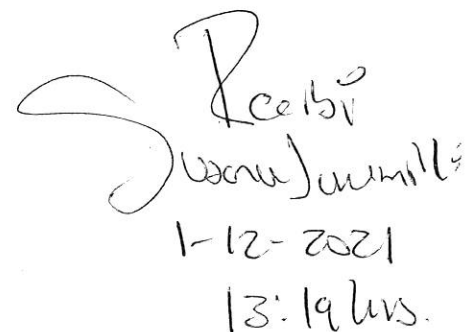 Recibí
Susana Jaramillo
1-12-2021
13:19 hrs.